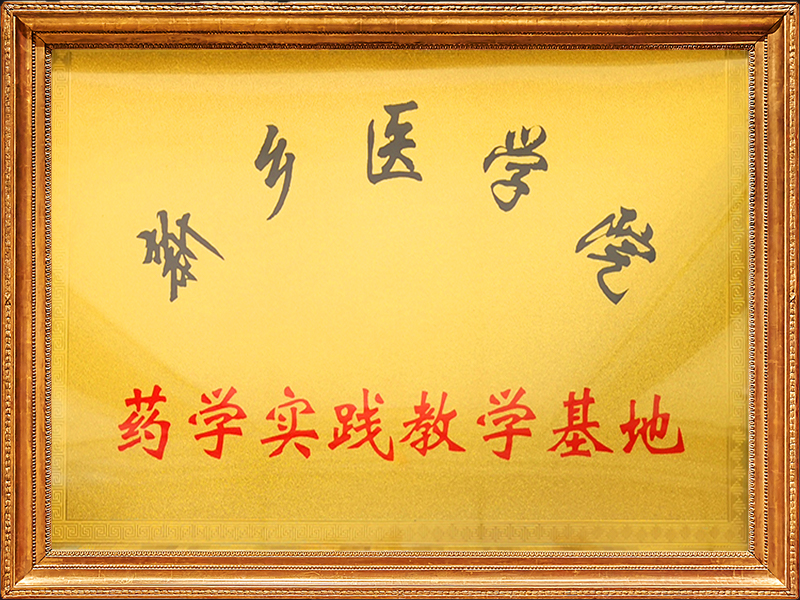 新乡医学院
药学实践教学基地